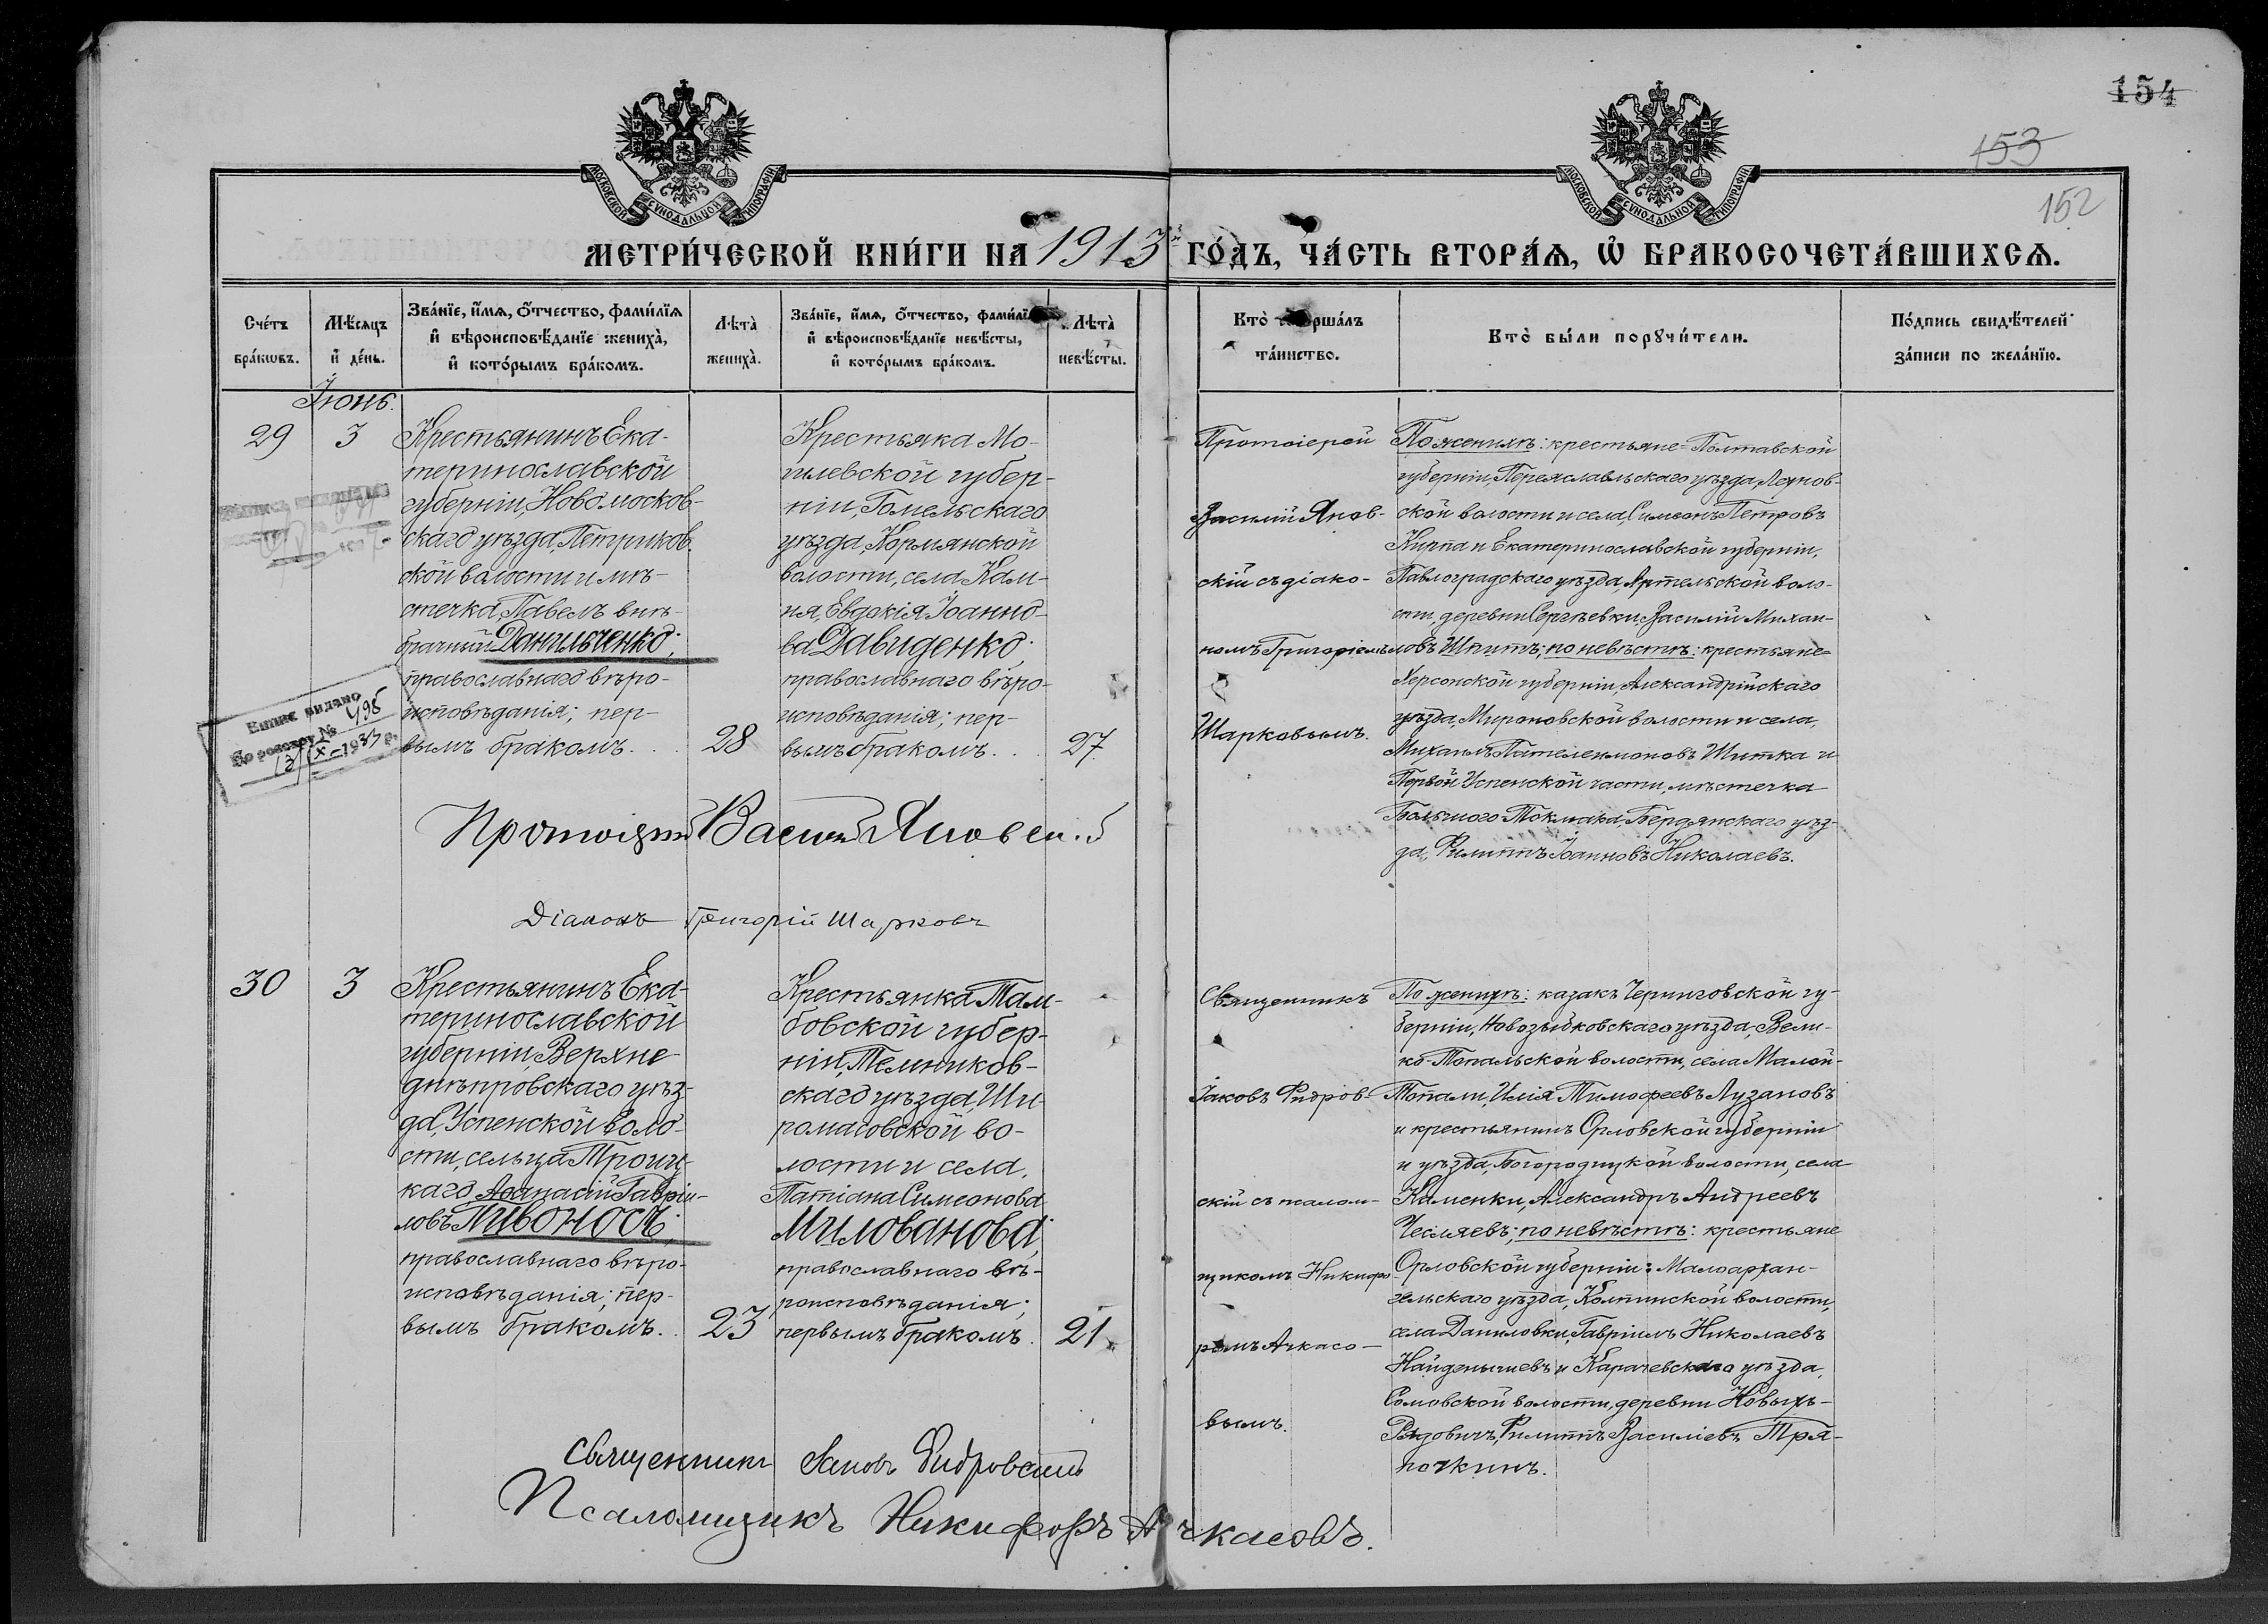 154
153
152
МОСКОВСКОЙ СѴНОДАЛЬНОЙ ТИПОГРАФІИ
МОСКОВСКОЙ СѴНОДАЛЬНОЙ ТИПОГРАФІИ
МЕТРИ́ЧЕСКОЙ КНИ́ГИ НА 1913й ГО́ДЪ, ЧА́СТЬ ВТОРА́Ѧ, Ѡ҆ БРАКОСОЧЕТА́ВШИХСѦ.
Сче́тъ бра́кѡвъ.
Мѣ́сѧцъ и҆ де́нь.
Зва́нїе, и҆́мѧ, ѻ҆́тчество, фами́лїѧ и҆ вѣроисповѣ́данїе жениха̀, и҆ кото́рымъ бра́комъ.
Лѣта̀ жениха̀.
Зва́нїе, и҆́мѧ, ѻ҆́тчество, и҆ вѣроисповѣ́данїе невѣ́сты, и҆ кото́рымъ бра́комъ.
Лѣта̀ невѣ́сты.
Кто̀ та́инство.
Кто̀ бы́ли порꙋчи́тели.
По́дпись свидѣ́телей за́писи по жела́нїю.
Іюнь.
29
3
Крестьянинъ Ека-
теринославской
губерніи, Новомосков-
скаго уѣзда, Петриков-
ской волости и мѣ-
стечка, Павелъ внѣ-
брачный Данильченко;
православнаго вѣро-
исповѣданія; пер-
вымъ бракомъ. . .
28
Крестьянка Мо-
гилевской губер-
ніи, Гомельскаго
уѣзда, Кормянской
волости, села Кам-
ня, Евдокія Іоанно-
ва Давиденко;
православнаго вѣро-
исповѣданія; пер-
вымъ бракомъ. . .
27.
Протоіерей
Василій Янов-
скій съ діако-
номъ Григоріемъ
Шарковымъ.
По женихѣ: крестьяне= Полтавской
губерніи, Переяславльскаго уѣзда,
ской волости и села, Симеонъ Петровъ
Кирпа и Екатеринославской губерніи,
Павлоградскаго уѣзда, Артельской воло-
сти, деревни Сергѣевки Василій Михаи-
ловъ Шпитъ; по невѣстѣ: крестьяне=
Херсонской губерніи, Александрійскаго
уѣзда, Мироновской волости и села,
Михаилъ Пателеимоновъ Шитка и
Первой Успенской части, мѣстечка
Большого Токмака, Бердянскаго уѣз-
да, Филиппъ Іоанновъ Николаевъ.
Випис видано
По реєстру № 498
13/IX-1937 р.
Протоіерей Василій Яновскій
Діаконъ Григорій Шарковъ
30
3
Крестьянинъ Ека-
теринославской
губерніи, Верхне-
днѣпровскаго уѣз-
да, Успенской воло-
сти, сельца Троиц-
каго Аѳанасій Гаврі-
ловъ Пивоносъ;
православнаго вѣро-
исповѣданія; пер-
вымъ бракомъ. .
23
Крестьянка Там-
бовской губер-
ніи, Темников-
скаго уѣзда, Ши-
ромасовской во-
лости и села,
Татіана Симеонова
Милованова;
православнаго вѣ-
роисповѣданія;
первымъ бракомъ.
21.
Священникъ
Іаковъ Фидров-
скій съ псалом-
щикомъ Никифо-
ромъ Ачкасо-
вымъ.
По женихѣ: казакъ Черниговской гу-
берніи, Новозыбковскаго уѣзда, Вели-
ко-Топальской волости, села Малой-
Топали, Илія Тимоѳеевъ Лузановъ
и крестьянинъ Орловской губерніи
и уѣзда, Богородицкой волости, села
Каменки, Александръ Андреевъ
Чесляевъ; по невѣстѣ: крестьяне
Орловской губерніи: Малоархан-
гельскаго уѣзда, Колпинской волости,
села Даниловки, Гавріилъ Николаевъ
Найденышевъ и Карачевскаго уѣзда,
Сомовской волости, деревни Новыхъ-
Рядовичъ, Филиппъ Василіевъ Тря-
почкинъ.
Священникъ Іаковъ Фидровскій
Псаломщикъ Никифоръ Ачкасовъ.